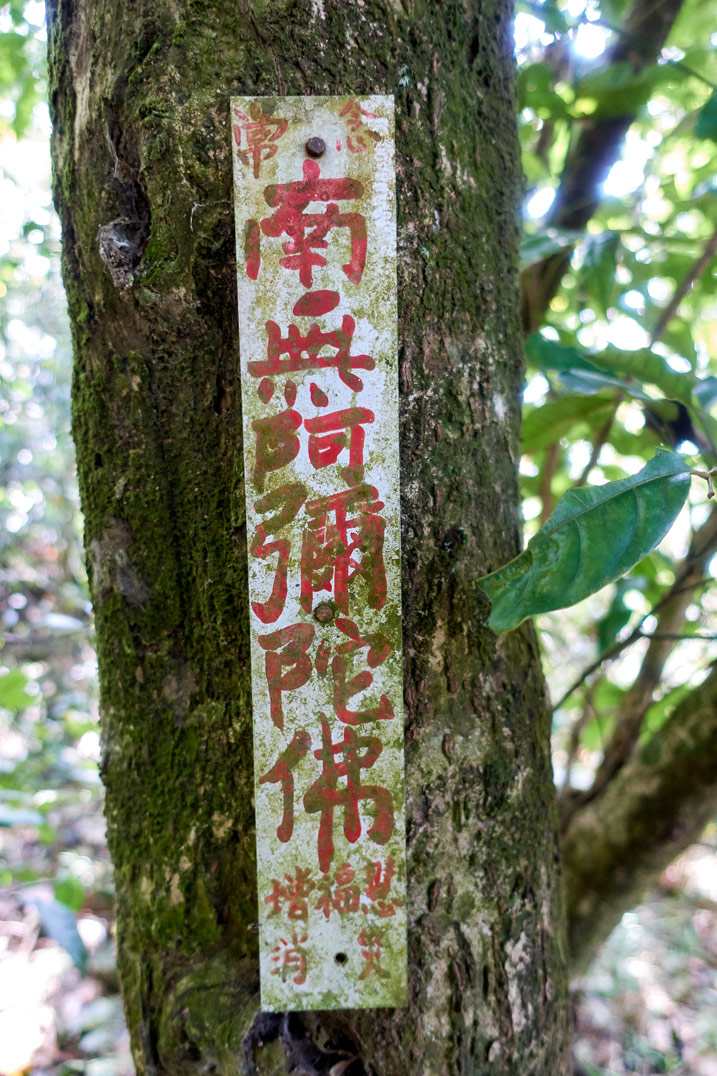 常念
南無阿彌陀佛
增福慧
消災